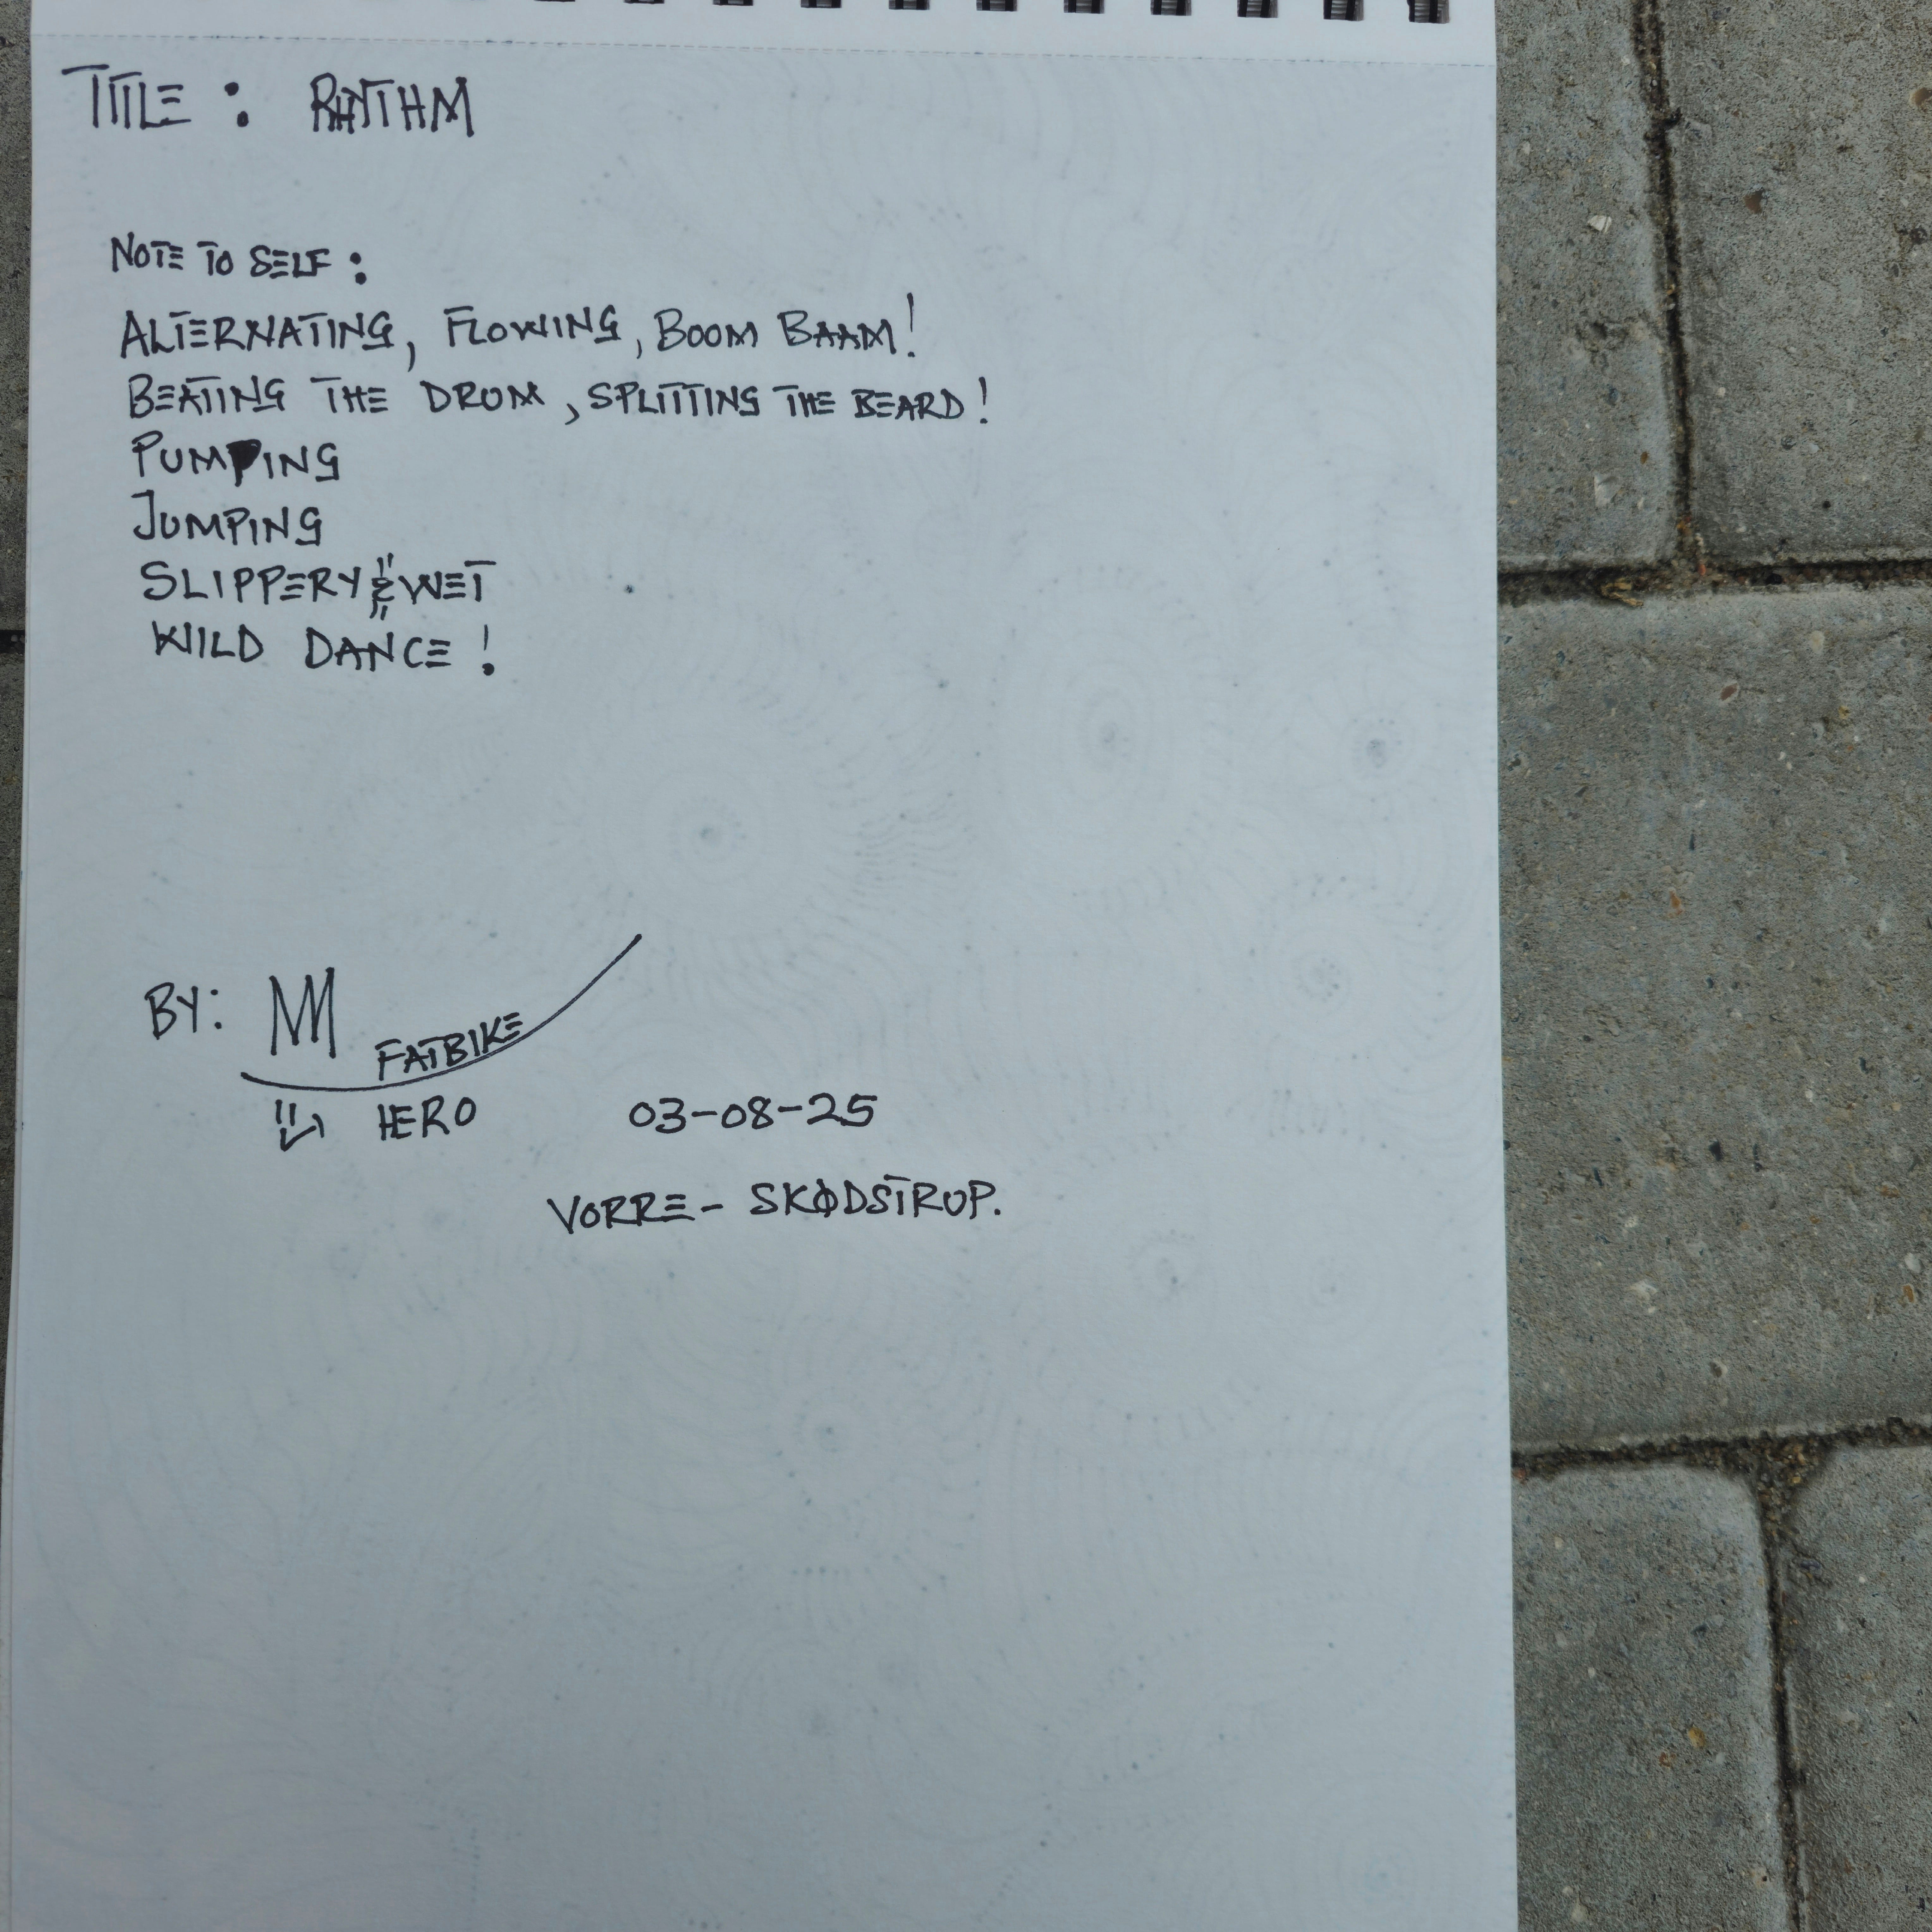 TITLE : RHYTHM
NOTE TO SELF :
ALTERNATING, FLOWING, BOOM BAAM!
BEATING THE DRUM, SPLITTING THE BEARD!
PUMPING
JUMPING
SLIPPERY & WET
WILD DANCE!
BY: M
FATBIKE
HERO 03-08-25
VORRE - SKØDSTRUP.